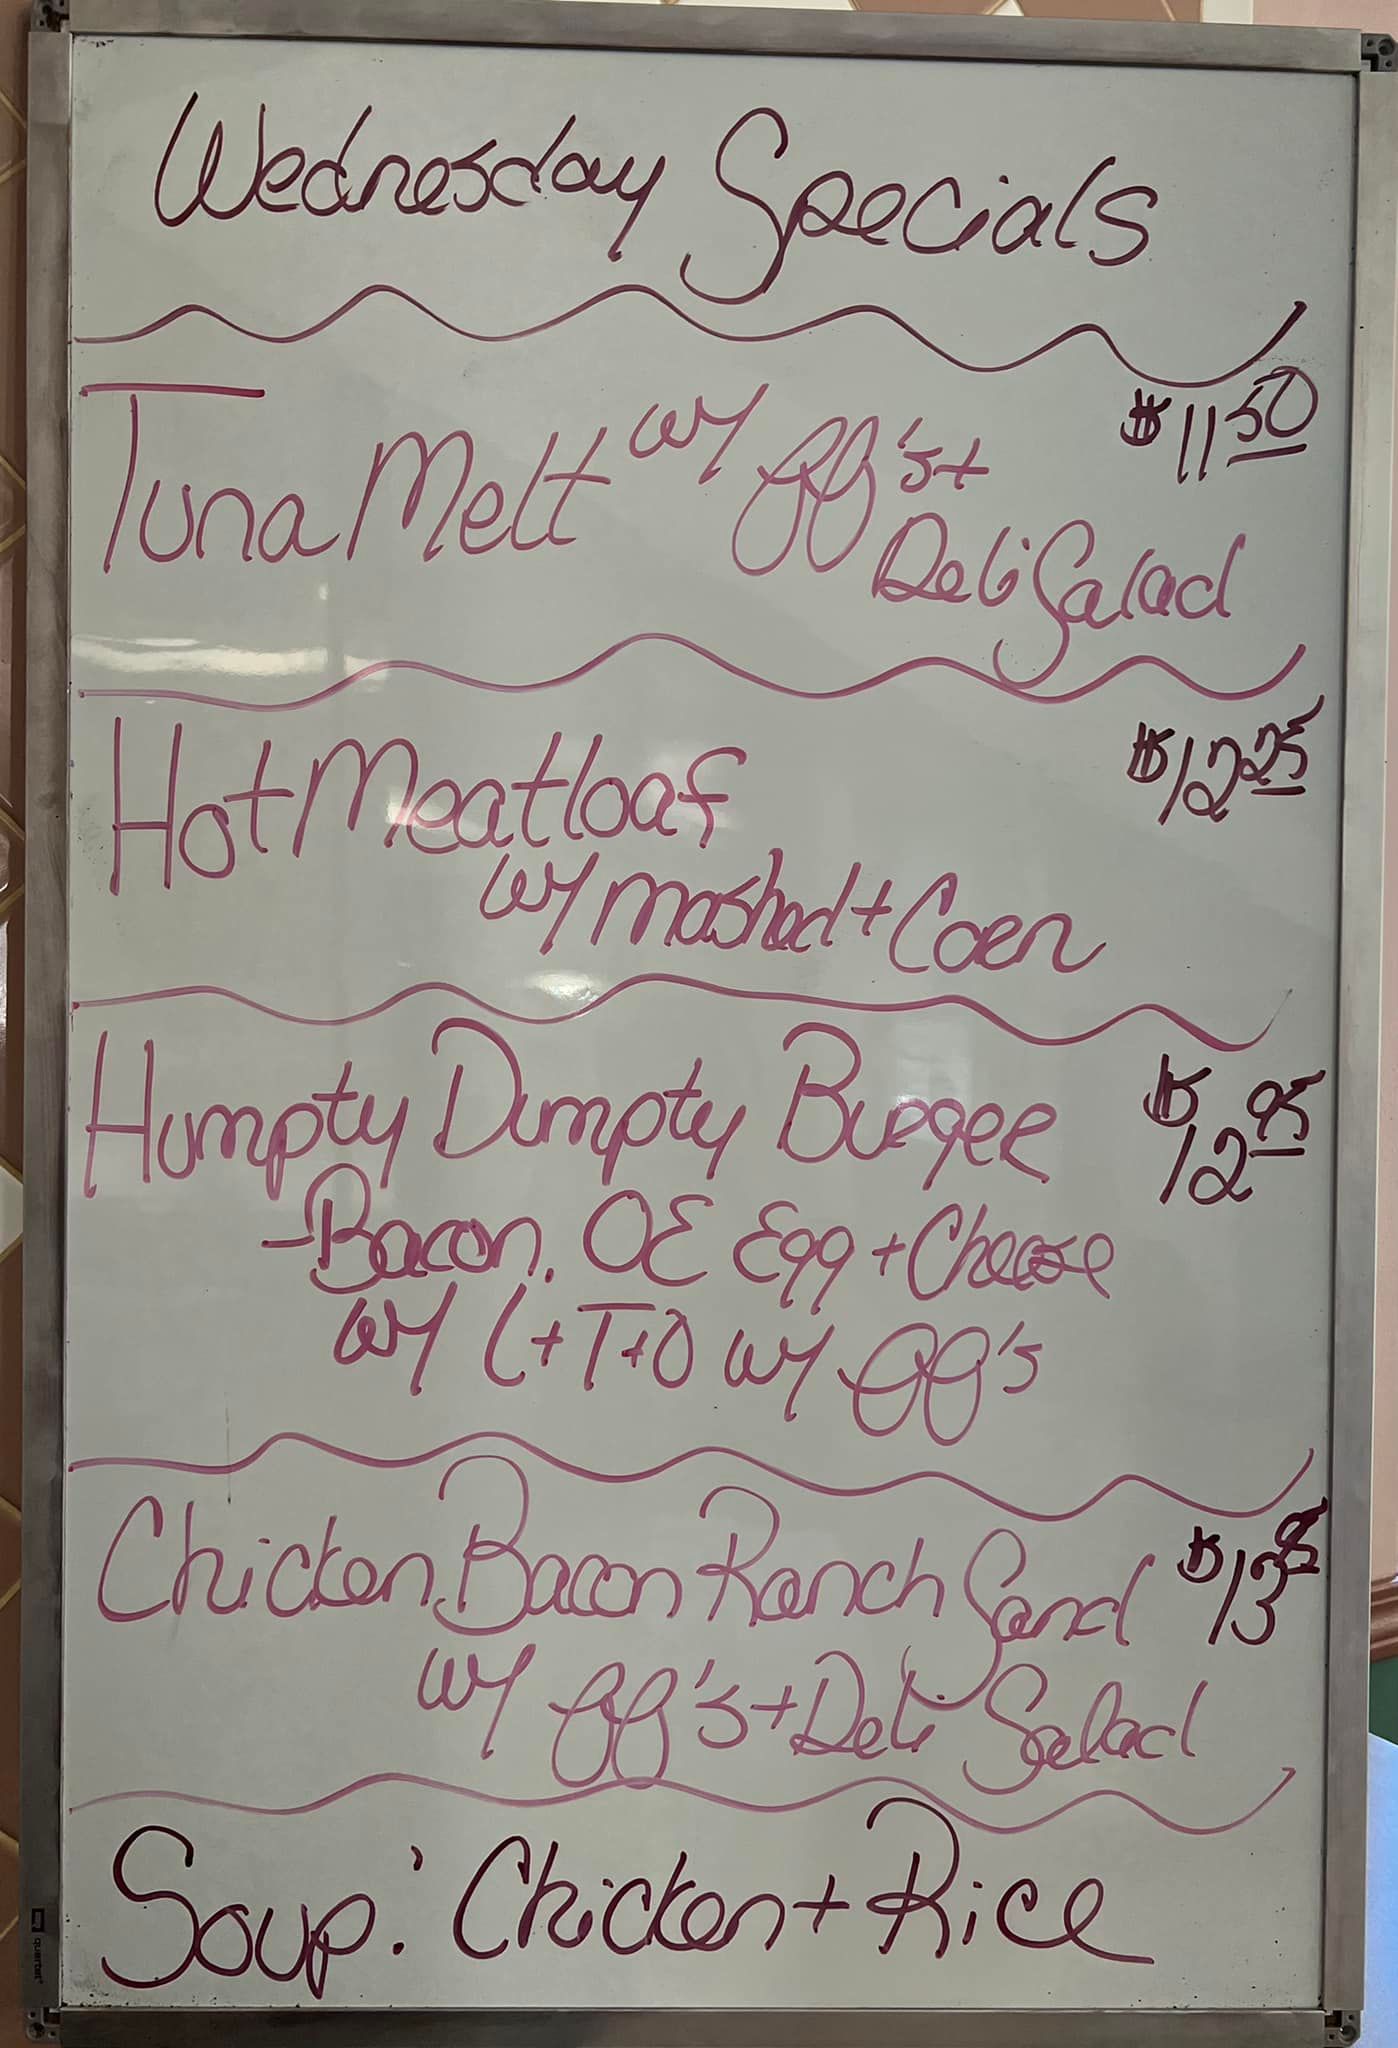 Wednesday Specials
Tuna Melt w/ ff's + $11.50
Deli Salad
Hot Meatloaf $12.25
w/ mashed + Corn
Humpty Dumpty Burger $12.95
- Bacon, OE Egg + Cheese
w/ L+T+O w/ ff's
Chicken Bacon Ranch Sand $13.95
w/ ff's + Deli Salad
Soup: Chicken + Rice
quartet